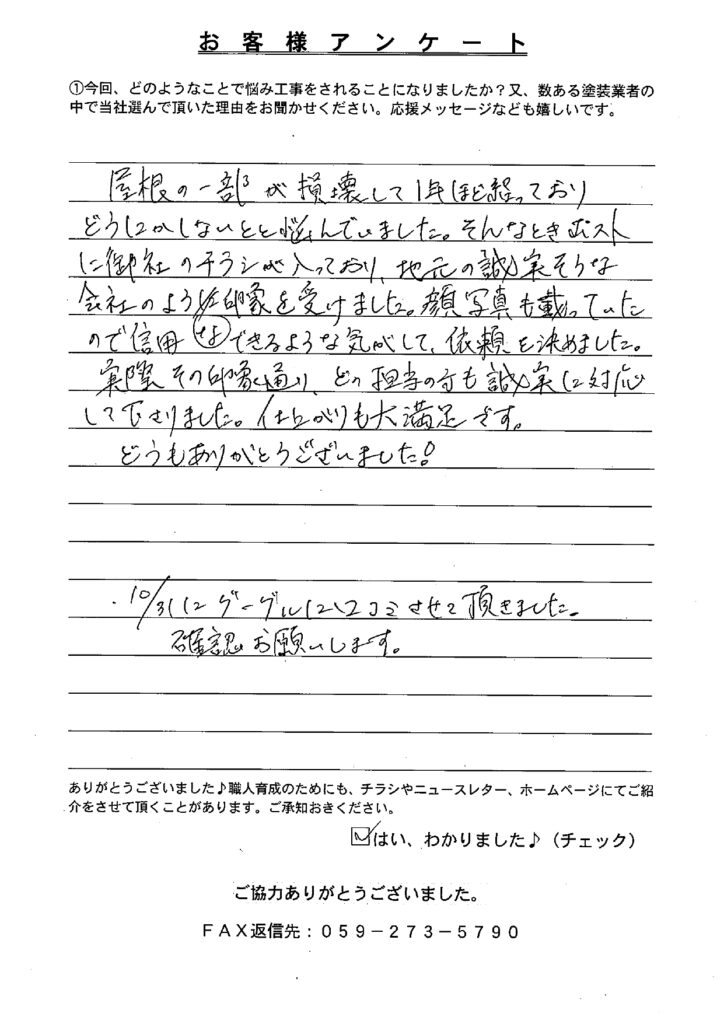 お客様アンケート
①今回、どのようなことで悩み工事をされることになりましたか？又、数ある塗装業者の
中で当社選んで頂いた理由をお聞かせください。応援メッセージなども嬉しいです。
屋根の一部が損壊して1年ほど経っており
どうにかしないとと悩んでいました。そんなときポスト
に御社のチラシが入っており、地元の誠実そうな
会社のような印象を受けました。顔写真も載っていた
ので信用できるような気がして、依頼を決めました。
実際その印象通り、どの担当の方も誠実に対応
して下さりました。仕上がりも大満足です。
どうもありがとうございました!
・10/31にグーグルに口コミさせて頂きました。
確認お願いします。
ありがとうございました♪職人育成のためにも、チラシやニュースレター、ホームページにてご紹
介をさせて頂くことがあります。ご承知おきください。
☑はい、わかりました♪（チェック）
ご協力ありがとうございました。
ＦＡＸ返信先：０５９－２７３－５７９０